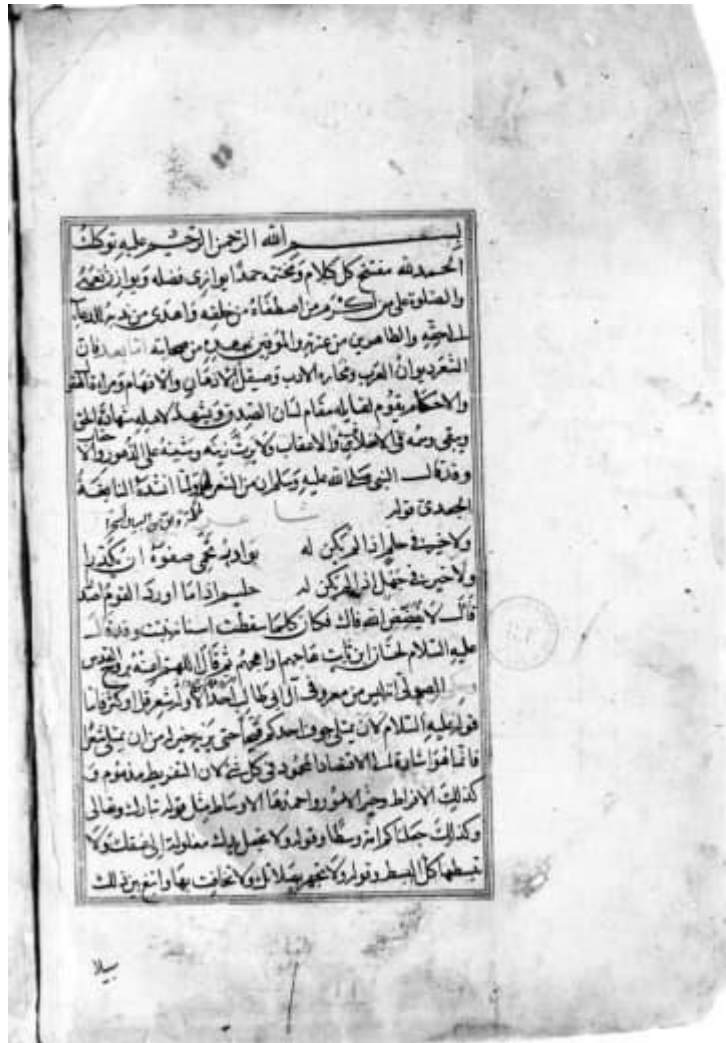 بسم الله الرحمن الرحيم عليه توكلت
الحمد لله مفتتح كل كلام ومختتمه حمدا يوازى فضله ويوازن نعمه
والصلوة على من اكرم من اصطفاه من خلقه واهدى من ندبه للدعاء
الى حقه والطاهرين من عترته والموفين بعهده من صحابته اما بعد فان
الشعر ديوان العرب الادب وصيقل الاذهان والافهام
والاحكام يقوم لقايله مقام لسان الصدق ويشهد لاهله شهادة الحق
ويبقى وسمه فى الاخلاق والاعقاب ولا يرث زينه وشينه على الدهور والا
وقد قال النبى صلى الله عليه وسلم ان من الشعر ولما انشده النابغة
الجعدى قوله شاعر
ولا خير فى حلم اذا لم يكن له بوادر تحمى صفوه ان يكدرا
ولا خير فى جهل اذا لم يكن له حليم اذا ما اورد القوم اصدر
قال لا يفضض الله فاك فكان كلما سقطت اسنانه نبتت وقد قال
عليه السلام لحسان ابن ثابت هاجهم واهجهم ثم قال اللهم اعنه بروح القدس
الصولى انه ليس من معروفى آل ابى طالب احد الا وله شعر قل او كثر فاما
قوله عليه السلام لان يمتلى جوف احدكم قيحا حتى يريه خير له من ان يمتلى شعرا
فانما هو اشارة لنا الى الاقتصاد المحمود فى كل شئ لان التفريط مذموم و
كذلك الافراط وخير الامور واحمدها الاوساط مثل قوله تبارك وتعالى
وكذلك جعلناكم امة وسطا وقوله ولا تجعل يدك مغلولة الى عنقك ولا
تبسطها كل البسط وقوله ولا تجهر بصلاتك ولا تخافت بها وابتغ بين ذلك
سبيلا